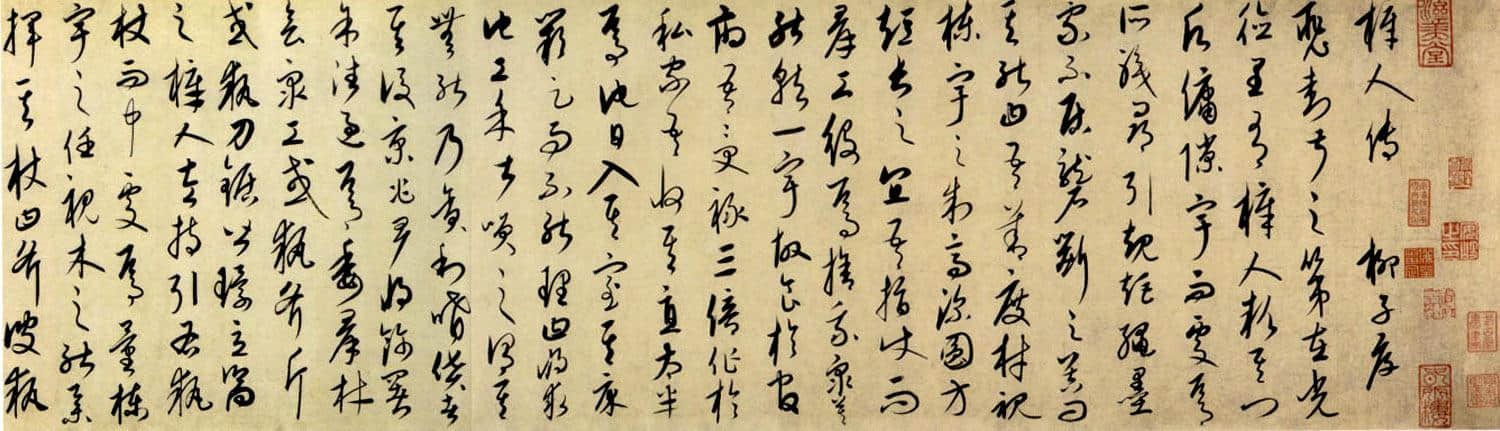 梓人傳 柳子厚
裴封叔之第在光
德里有梓人款其門
願傭隙宇而處焉
所職尋引規矩繩墨
家不居礱斲之器問
其能曰吾善度材視
棟宇之制高深圓方
短長之宜吾指使而
羣工役焉捨我衆莫
能就一宇故食於官
府吾受祿三倍作於
私家吾收其直太半
焉他日入其室其床
闕足而不能理曰將求
他工余甚笑之謂其
無能乃貪利嗜貨者
其後京兆尹將飾署
余往過焉委羣材
會衆工或執斧斤
或執刀鋸皆環立嚮
之梓人左持引右執
杖而中處焉量棟
宇之任視木之能舉
揮其杖曰斧彼執